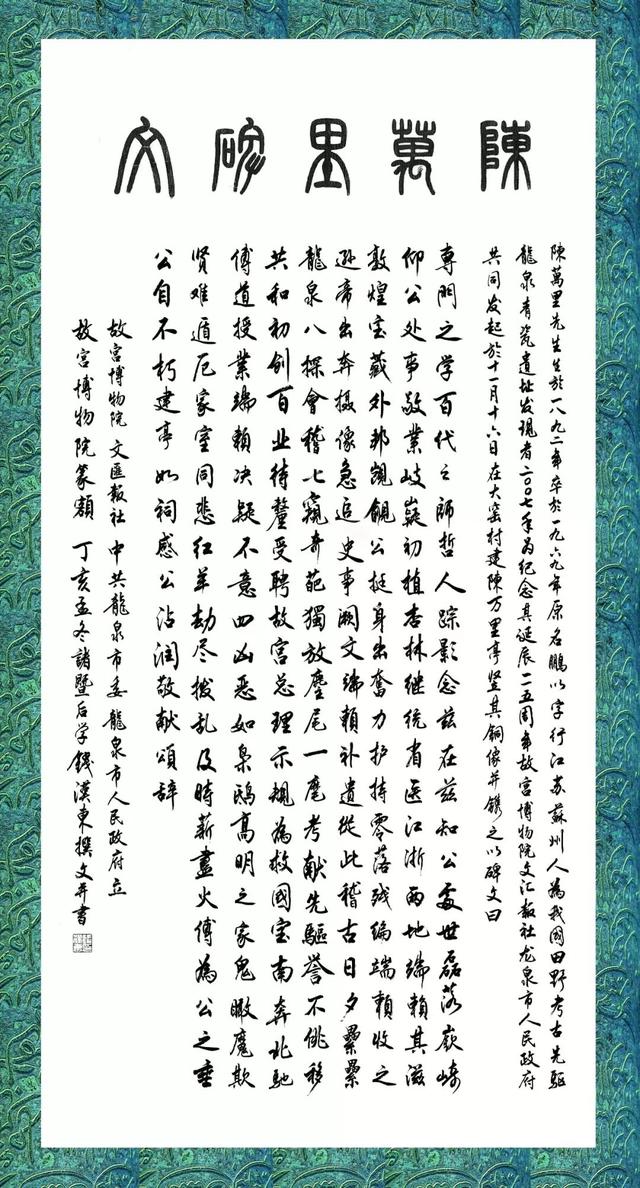 陳萬里碑文
陳萬里先生生於一八九二年卒於一九六九年原名鵬以字行江苏蘇州人為我國田野考古先驅
龍泉青瓷遺址发現者二〇〇七年为纪念其诞辰一一五周年故宮博物院文汇報社龙泉市人民政府
共同发起於十一月十六日在大窑村建陳万里亭竖其铜像并镌之以碑文曰
專門之学百代之師哲人踪影念兹在兹知公處世磊落嶔崎
仰公处事敬業岐嶷初植杏林继统省医江浙两地端賴其滋
敦煌宝藏外邦觊覦公挺身出奮力护持零落残编端賴收之
逊帝出奔摄像急追史事阙文端賴补遺從此稽古日夕纍纍
龍泉八探會稽七窺奇葩獨放麈尾一麾考献先驅誉不俳移
共和初创百业待釐受聘故宫总理示規為救國宝南奔北馳
傳道授業端賴决疑不意四凶恶如枭鴟高明之家鬼瞰魔欺
贤难遁厄家室同悲红羊劫尽拨乱及時薪盡火傳為公之垂
公自不朽建亭如祠感公沾润敬献頌辞
故宫博物院 文匯報社 中共龍泉市委 龍泉市人民政府立
故宮博物院篆額 丁亥孟冬諸暨后学錢漢東撰文并書